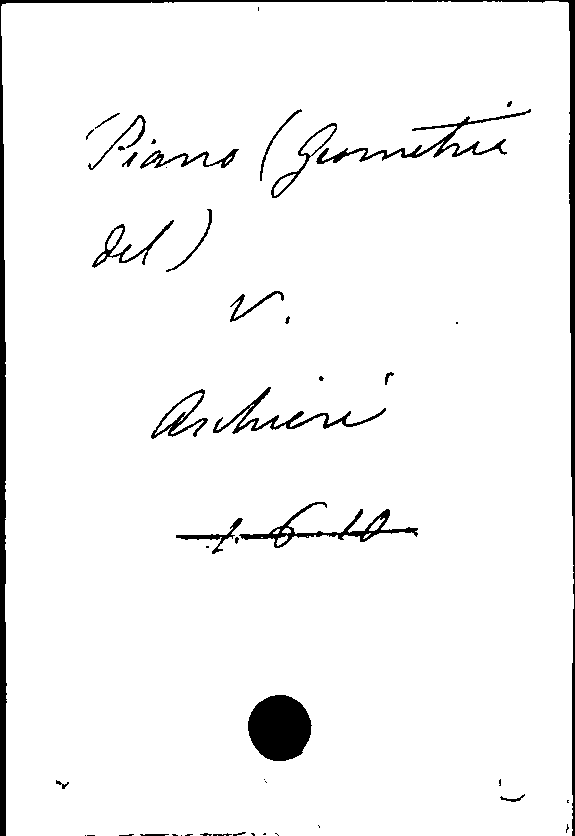 Piano (Geometria
del)
V.
Aschieri
1.6.10